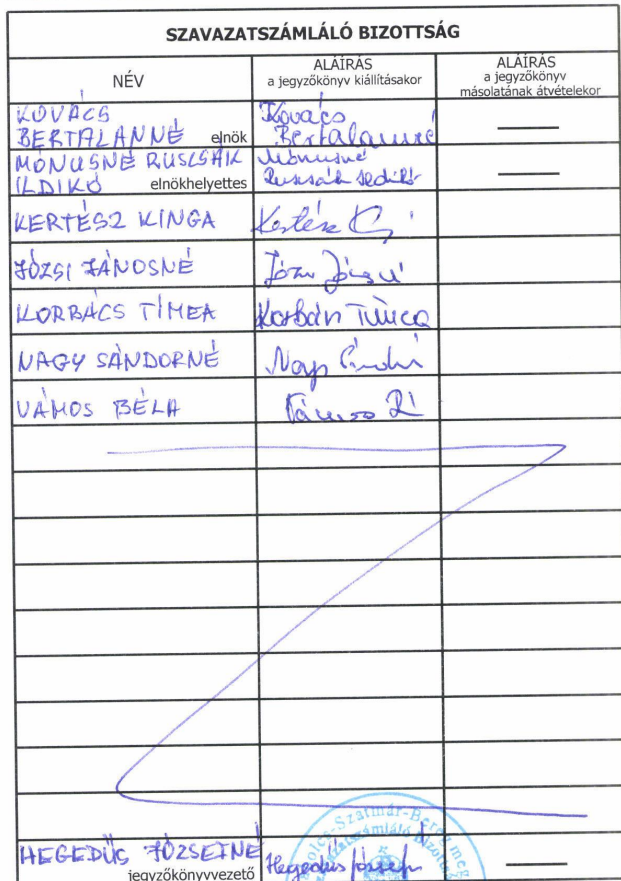 SZAVAZATSZÁMLÁLÓ BIZOTTSÁG
NÉV
ALÁÍRÁS
a jegyzőkönyv kiállításakor
ALÁÍRÁS
a jegyzőkönyv
másolatának átvételekor
KOVÁCS
BERTALANNÉ elnök
Kovács
Bertalanné
MÓNUSNÉ RUSCSÁK
ILDIKÓ elnökhelyettes
Mónusné
Ruscsák Ildikó
KERTÉSZ KINGA
Kertész K
JÓZSI JÁNOSNÉ
Józsi Jánosné
KORBÁCS TÍMEA
Korbács Tímea
NAGY SÁNDORNÉ
Nagy Sándorné
VÁMOS BÉLA
Vámos Bé
HEGEDŰS JÓZSEFNÉ
jegyzőkönyvvezető
Hegedűs József
Szatmár-Bereg meg